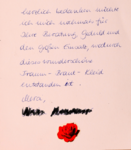 herzlich bedanken möchte
ich mich nochmals für
Ihre Beratung, Geduld und
den großen Einsatz, wodurch
dieses wunderschöne
Traum-Braut-Kleid
entstanden ist.
Merci,